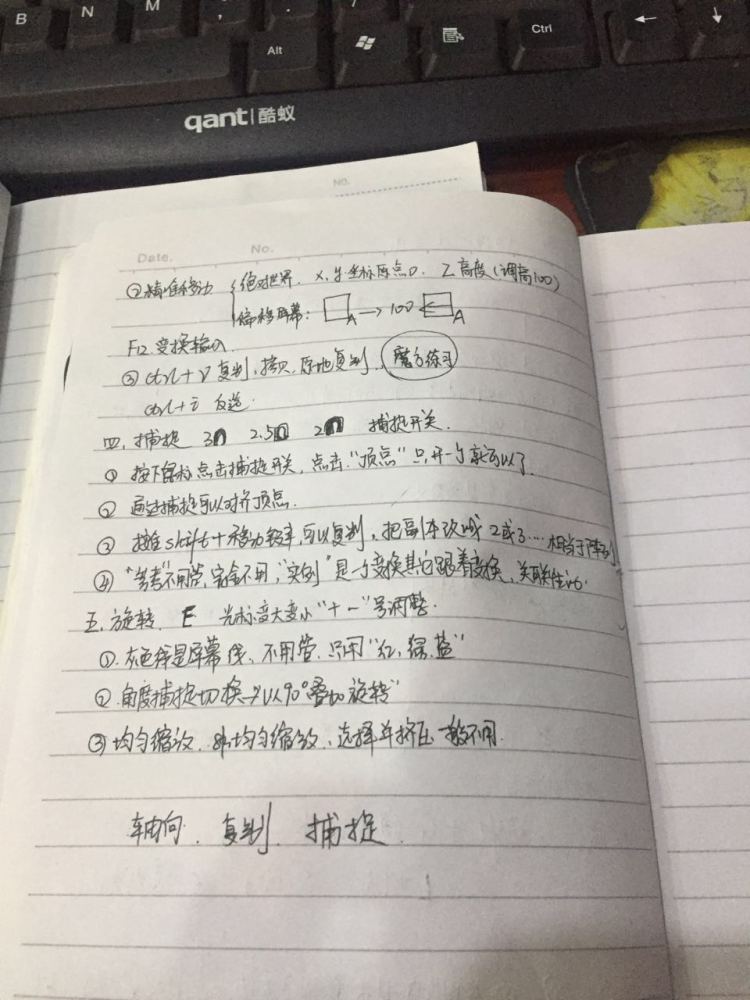 B N M , .
Alt Ctrl
qant 酷蚁
NO.
Date. No.
②精准移动 绝对世界. X, y 坐标原点0. Z 高度(调高100)
偏移屏幕: A → 100 A
F12 变换输入
③ ctrl+V 复制, 拷贝, 原地复制. 魔方练习
ctrl+i 反选.
四. 捕捉 3 2.5 2 捕捉开关.
① 按下鼠标点击捕捉开关, 点击"顶点"只开一个就可以了.
② 通过捕捉可以对齐顶点.
③ 按住shift+移动 可以复制, 把副本改成 2或3....相当于阵列
④ "参考"不用管, 完全不用, "实例"是一个变换其它跟着变换, 关联性
五. 旋转. E 光标变大变小"+ -"号调整.
①. 灰色 是屏幕线, 不用管. 只用"红, 绿, 蓝"
② 角度捕捉切换→以90°叠加旋转"
③ 均匀缩放. 非均匀缩放、选择并挤压一般不用.
轴向. 复制. 捕捉.